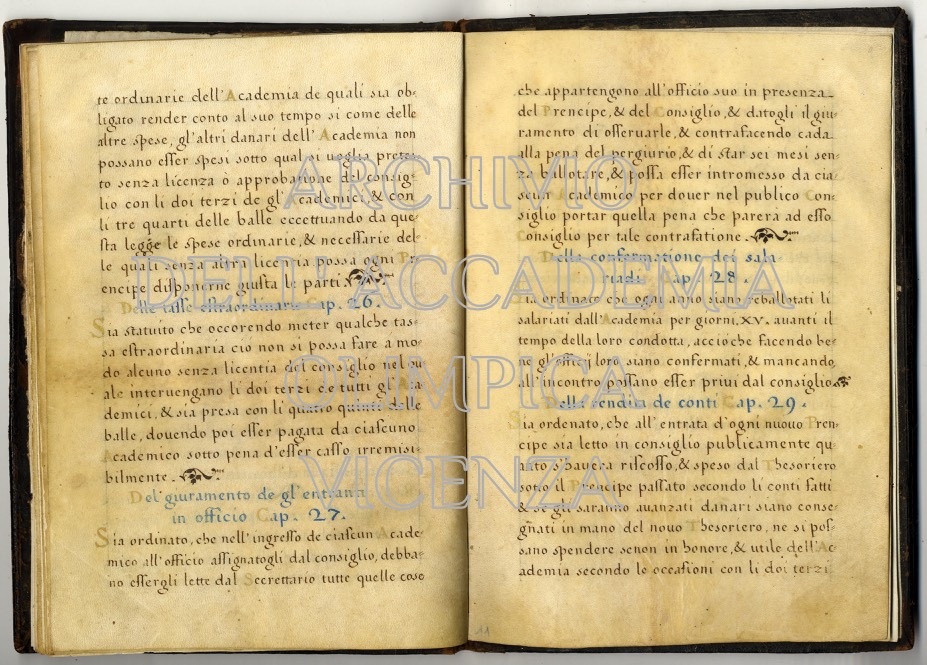 te ordinarie dell'Academia de quali sia ob-
ligato render conto al suo tempo si come delle
altre spese, gl'altri danari dell'Academia non
possano esser spesi sotto qual si uoglia prete-
to senza licenza ò approbatione del consig-
lio con li doi terzi de gl'Academici, & con
li tre quarti delle balle eccettuando da que-
sta legge le spese ordinarie, & necessarie del-
le quali senza altra licentia possa ogni Pr-
encipe disponerne giusta le parti.
Delle tasse estraordinarie Cap. 26.
Sia statuito che occorendo meter qualche tas-
sa estraordinaria ciò non si possa fare a mo-
do alcuno senza licentia del consiglio nel qu-
ale interuengano li doi terzi de tutti gl'Aca-
demici, & sia presa con li quatro quinti delle
balle, douendo poi esser pagata da ciascuno
Academico sotto pena d'esser casso irremisi-
bilmente.
Del giuramento de gl'entranti
in officio Cap. 27.
Sia ordinato, che nell'ingresso de ciascun Acade-
mico all'officio assignatogli dal consiglio, debba-
no essergli lette dal Secrettario tutte quelle cose
che appartengono all'officio suo in presenza
del Prencipe, & del Consiglio, & datogli il giu-
ramento di osseruarle, & contrafacendo cada
alla pena del pergiurio, & di star sei mesi sen-
za ballotare, & possa esser intromesso da cia-
scun Academico per douer nel publico Con-
siglio portar quella pena che parerà ad esso
Consiglio per tale contrafatione.
Della confermatione dei sala
riadi Cap. 28.
Sia ordinato che ogni anno siano reballotati li
salariati dall'Academia per giorni, XV. auanti il
tempo della loro condotta, acciò che facendo be-
ne gl'officij loro siano confermati, & mancando
all'incontro possano esser priui dal consiglio.
Della rendita de conti Cap. 29.
Sia ordenato, che all'entrata d'ogni nuouo Pren-
cipe sia letto in consiglio publicamente qu-
anto s'hauera riscosso, & speso dal Thesoriero
sotto il Prencipe passato secondo li conti fatti
& se gli saranno auanzati danari siano conse-
gnati in mano del nouo Thesoriero, ne si pos-
sano spendere senon in honore, & utile dell'Ac-
ademia secondo le occasioni con li doi terzi
11
ARCHIVIO
DELL'ACCADEMIA
OLIMPICA
VICENZA